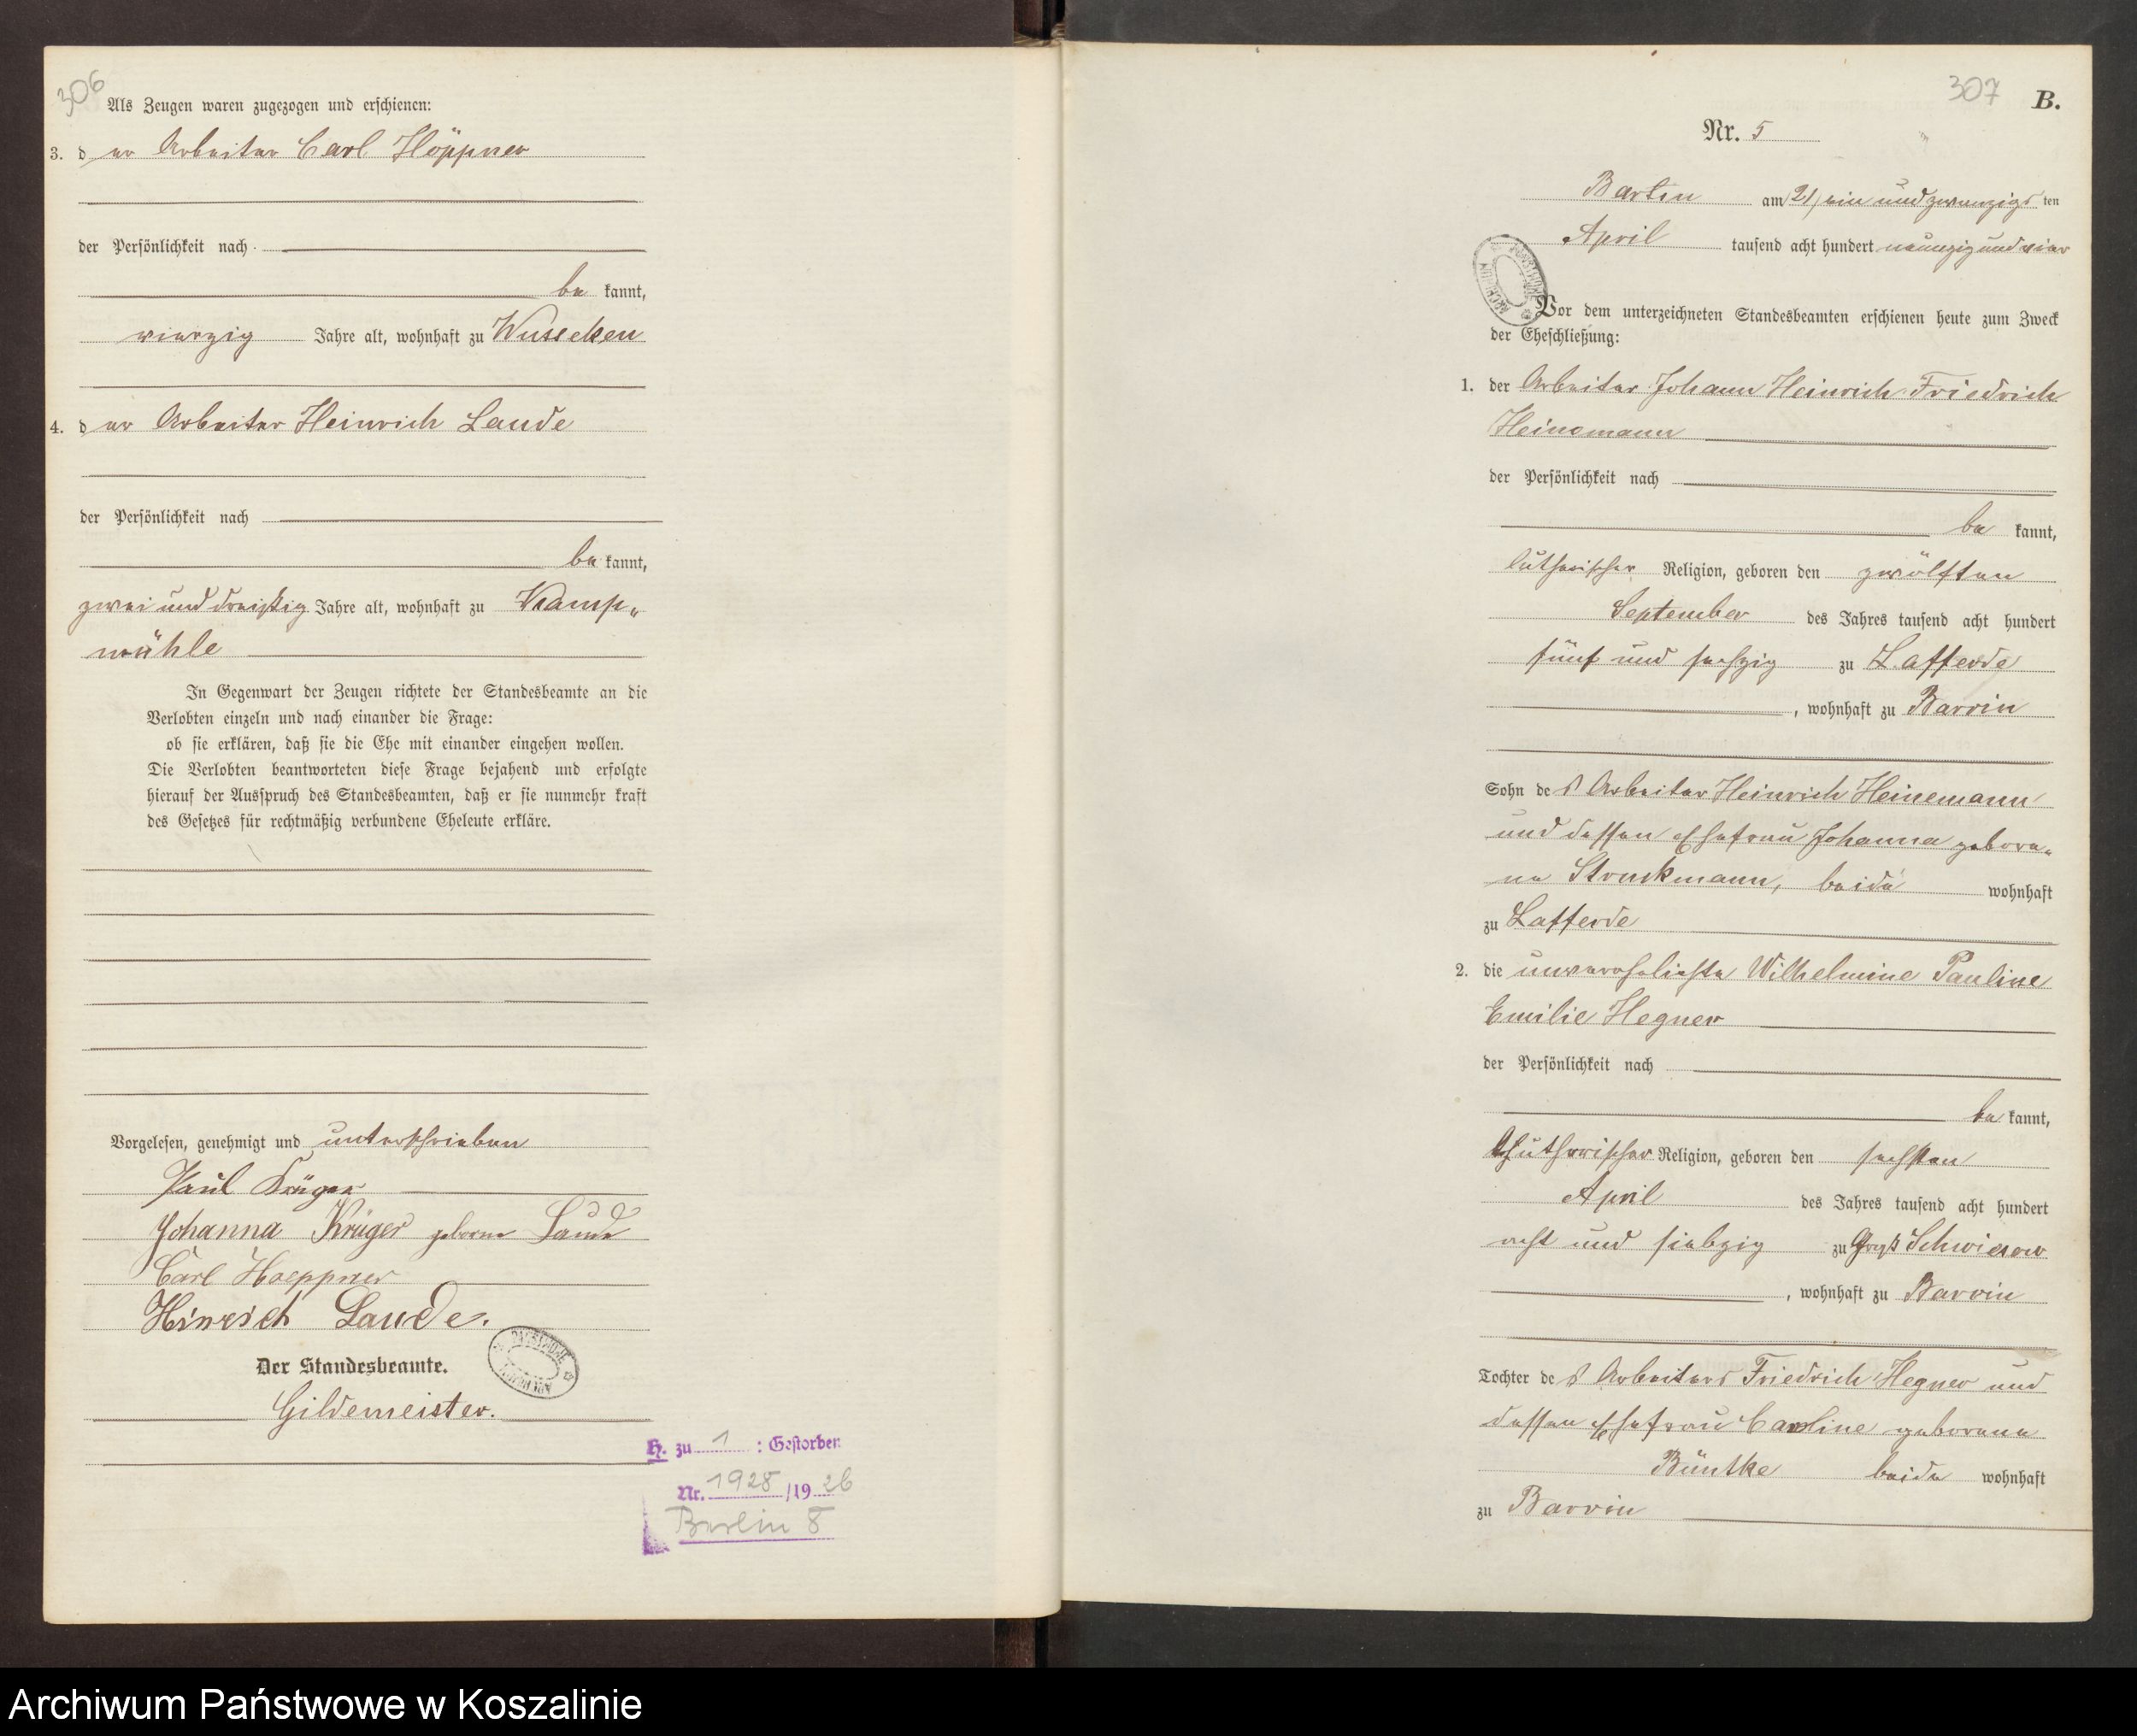 306
Als Zeugen waren zugezogen und erschienen:
3. der Arbeiter Carl Höppner
der Persönlichkeit nach
be kannt,
vierzig Jahre alt, wohnhaft zu Wussecken
4. der Arbeiter Heinrich Laude
der Persönlichkeit nach
be kannt,
zwei und dreißig Jahre alt, wohnhaft zu Kamp„
mühle
In Gegenwart der Zeugen richtete der Standesbeamte an die
Verlobten einzeln und nach einander die Frage:
ob sie erklären, daß sie die Ehe mit einander eingehen wollen.
Die Verlobten beantworteten diese Frage bejahend und erfolgte
hierauf der Ausspruch des Standesbeamten, daß er sie nunmehr kraft
des Gesetzes für rechtmäßig verbundene Eheleute erkläre.
Vorgelesen, genehmigt und unterschrieben
Paul Krüger
Johanna Krüger geborne Laude
Carl Hoeppner
Hinrich Laude.
Der Standesbeamte.
Gildemeister.
H. zu 1 : Gestorben
Nr. 1928 /19 26
Berlin 8
307 B.
Nr. 5
Bartin am 21, ein und zwanzigs ten
April tausend acht hundert neunzig und vier
Vor dem unterzeichneten Standesbeamten erschienen heute zum Zweck
der Eheschließung:
1. der Arbeiter Johann Heinrich Friedrich
Heinemann
der Persönlichkeit nach
be kannt,
lutherischer Religion, geboren den zwölften
September des Jahres tausend acht hundert
fünf und sechzig zu Lafferde
, wohnhaft zu Barvin
Sohn des Arbeiter Heinrich Heinemann
und dessen Ehefrau Johanna gebore„
ne Struckmann, beide wohnhaft
zu Lafferde
2. die unverehelichte Wilhelmine Pauline
Emilie Hegner
der Persönlichkeit nach
be kannt,
lutherischer Religion, geboren den sechsten
April des Jahres tausend acht hundert
acht und siebzig zu Groß Schwiesow
, wohnhaft zu Barvin
Tochter des Arbeiters Friedrich Hegner und
dessen Ehefrau Caroline geborene
Büntke beide wohnhaft
zu Barvin
Archiwum Państwowe w Koszalinie